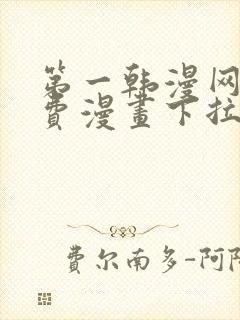 第一韩漫网
费漫畫下拉
费尔南多-阿隆